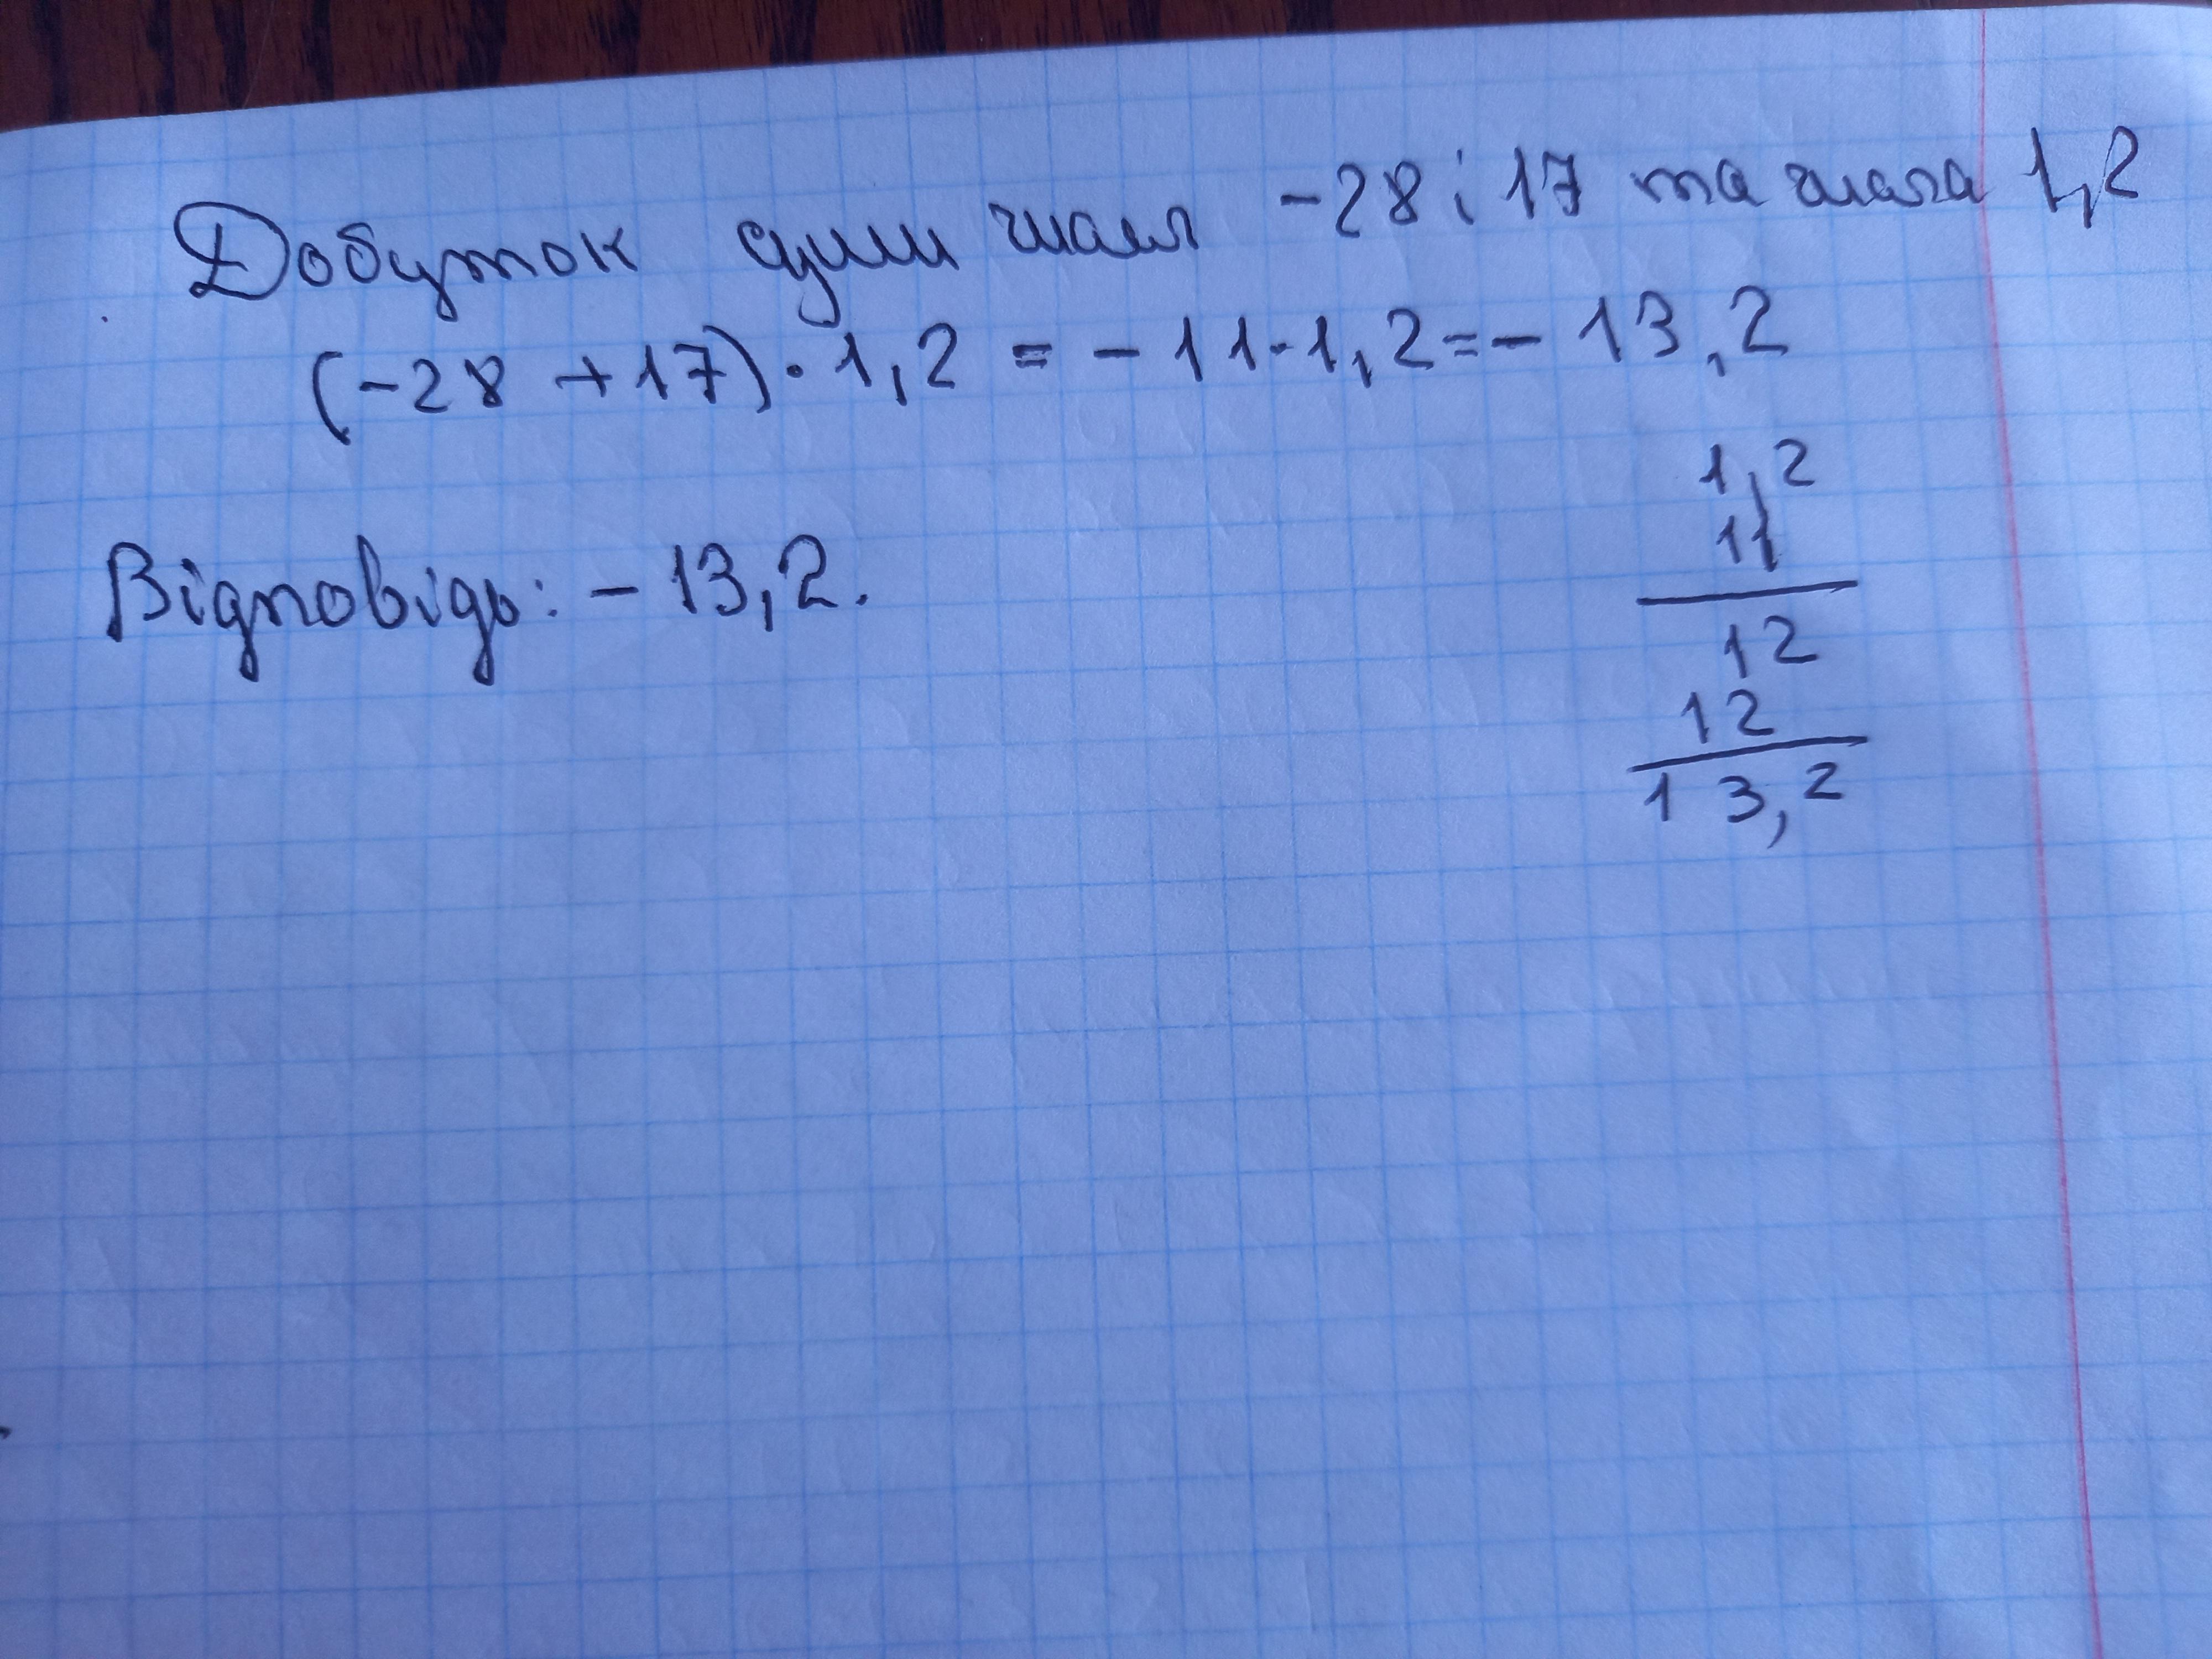 Добуток суми чисел -28 і 17 та числа 1,2
(-28 + 17) · 1,2 = - 11 · 1, 2 = - 13,2
Відповідь: - 13,2.
1,2
11
12
12
13,2